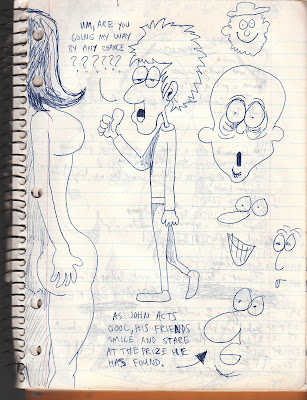 UM, ARE YOU
GOING MY WAY
BY ANY CHANCE
??????
AS JOHN ACTS
COOL, HIS FRIENDS
SMILE AND STARE
AT THE PRIZE HE
HAS FOUND.